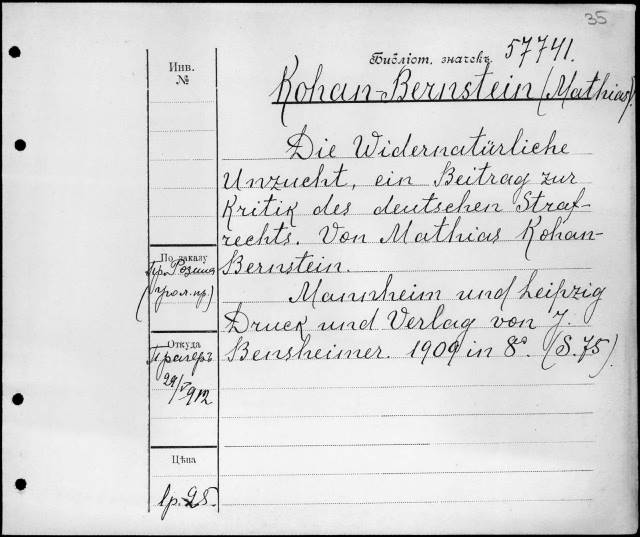 35
Библіот. значекъ 57741.
Инв.
№
Kohan-Bernstein (Mathias)
Die Widernatürliche
Unzucht, ein Beitrag zur
Kritik des deutschen Straf-
rechts. Von Mathias Kohan-
Bernstein.
Mannheim und Leipzig
Druck und Verlag von J.
Bensheimer. 1909 in 8º. (S. 75).
По заказу
Пр. Розина
(уголь. пр.)
Откуда
Прагеръ
29/V 912
Цѣна
1р. 25.